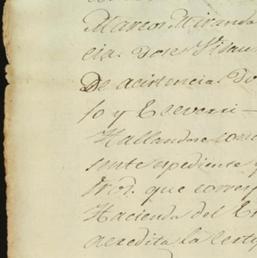 Marcos Miranda
cia. Jose
De asistencia. Do
so y Eseverri
Hallandose con
sente expediente y
que corres
Hacienda del
acredita la certi